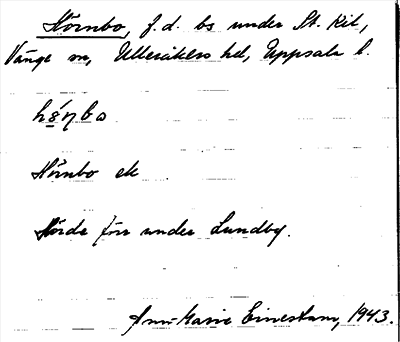 Hörnbo, f.d. bs under St. Kil,
Vänge sn, Ulleråkers hd, Uppsala l.
Hörnbo ek
Hörde förr under Lundby.
Ann-Marie Einestam, 1943.